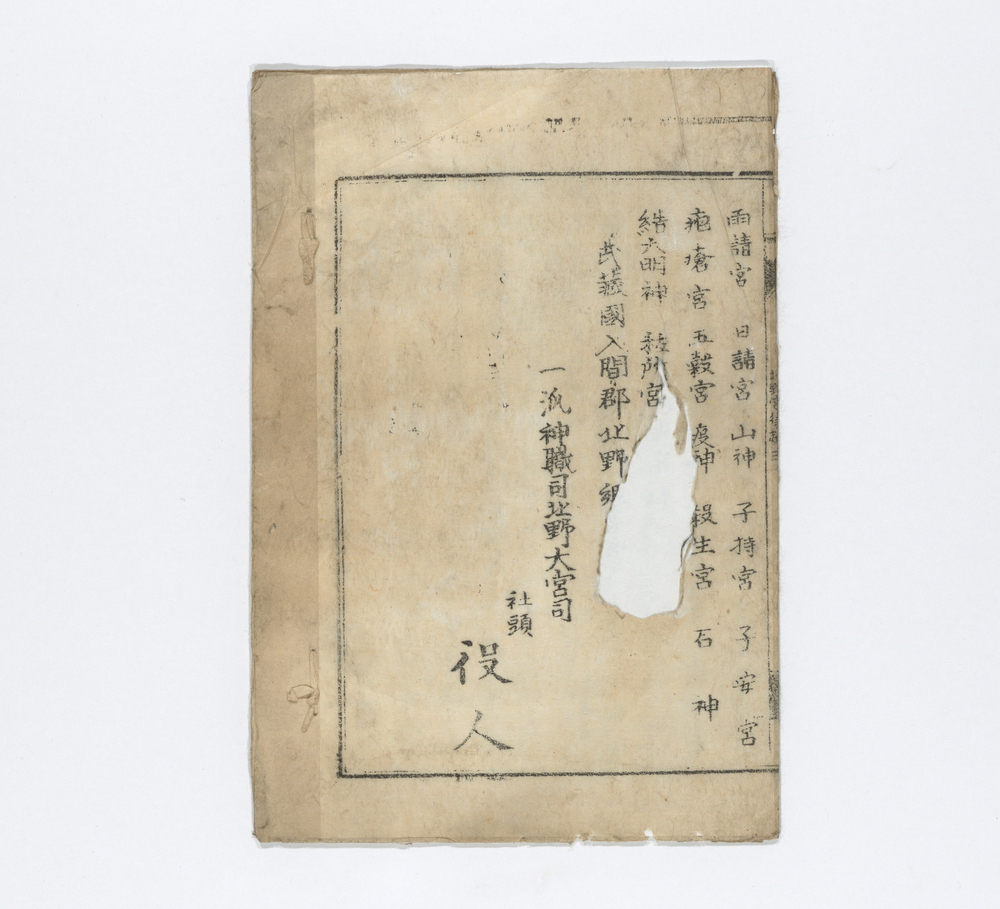 雨請宮 日請宮 山神 子持宮 子安宮
疱瘡宮 五穀宮 疫神 生宮 石神
結大明神 宮
武蔵國入間郡北野
一派神職司北野大宮司
社頭
役人